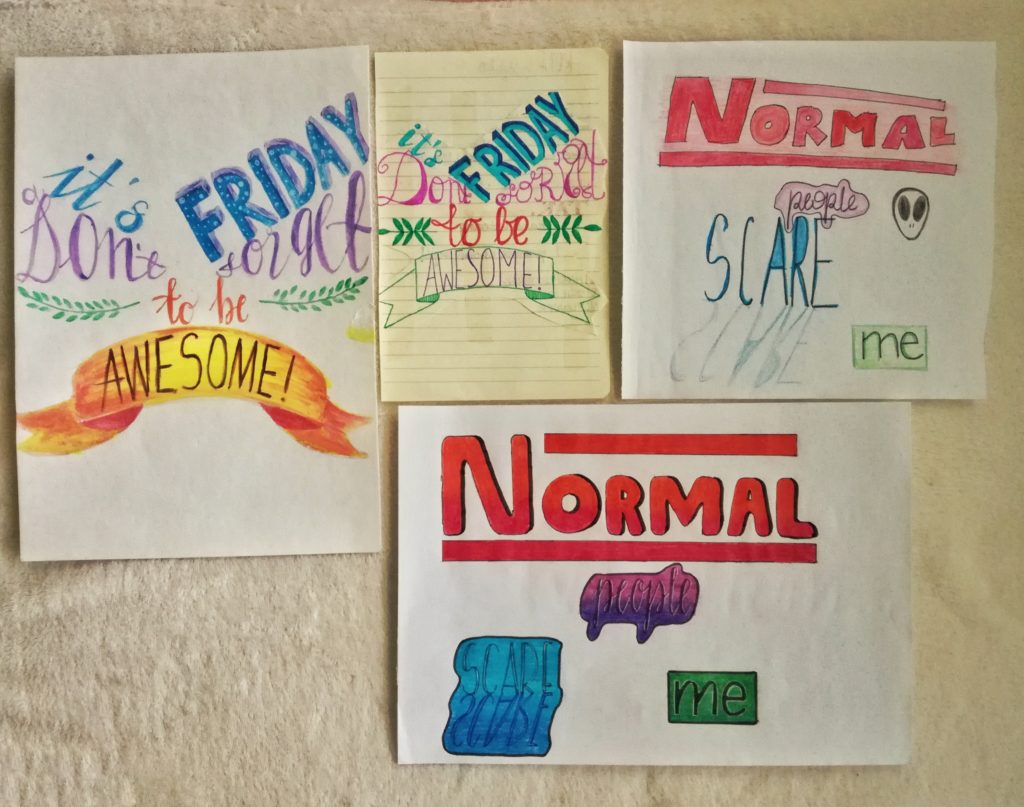 it's FRIDAY
Don't forget
to be
AWESOME!
it's FRIDAY
Don't forget
to be
AWESOME!
NORMAL
people
SCARE
me
NORMAL
people
SCARE
me